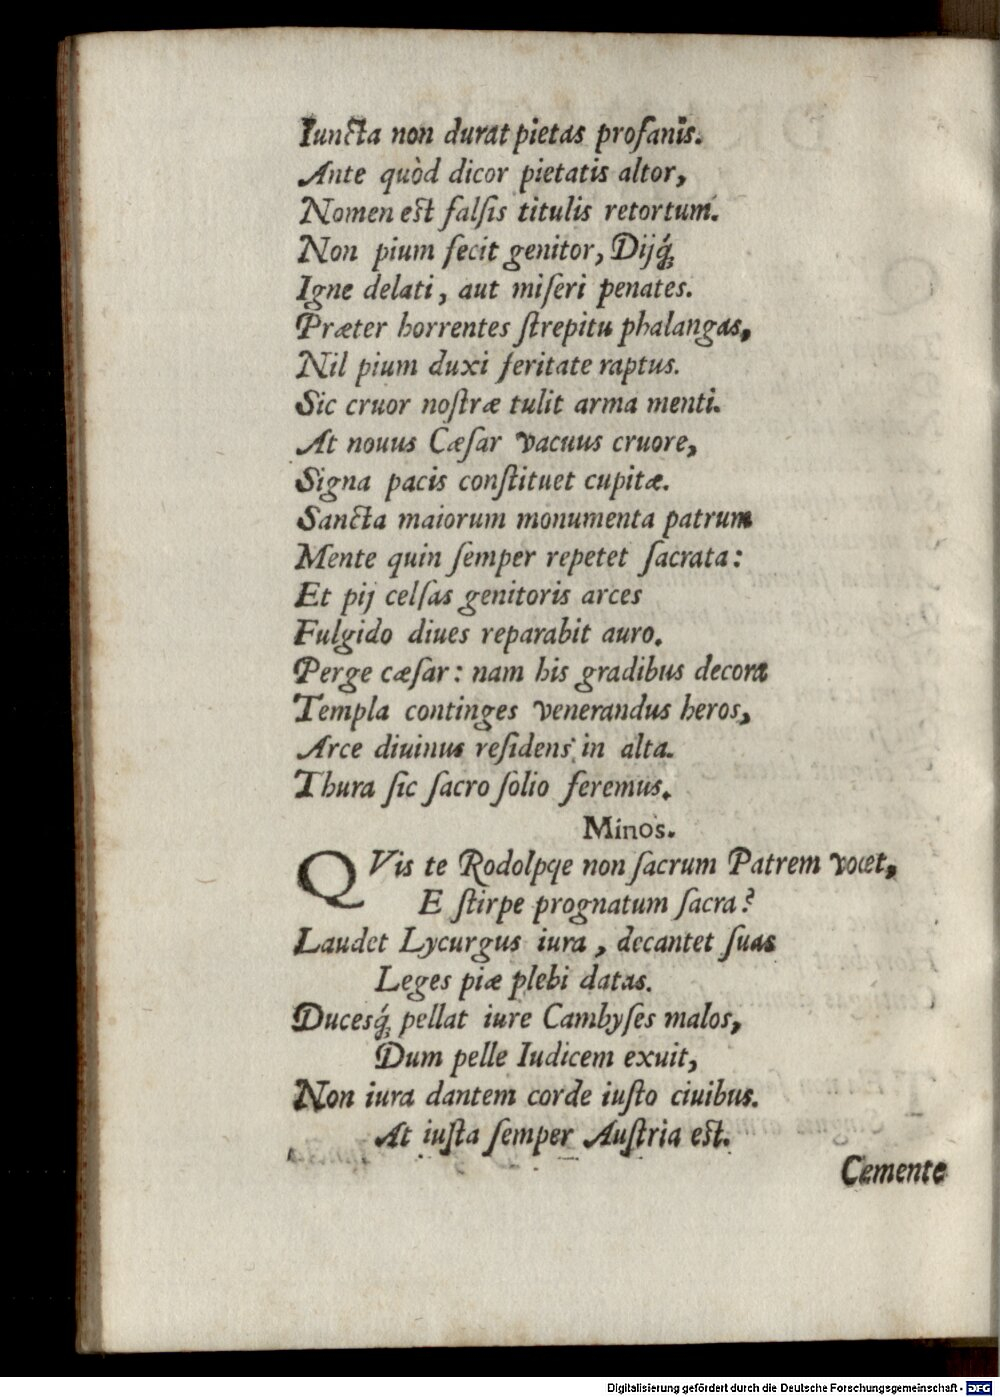 Iuncta non durat pietas profanis.
Ante quòd dicor pietatis altor,
Nomen est falſis titulis retortum.
Non pium fecit genitor, Dijq́;
Igne delati, aut miſeri penates.
Præter horrentes ſtrepitu phalangas,
Nil pium duxi feritate raptus.
Sic cruor noſtræ tulit arma menti.
At nouus Cæſar vacuus cruore,
Signa pacis conſtituet cupitæ.
Sancta maiorum monumenta patrum
Mente quin ſemper repetet ſacrata:
Et pij celſas genitoris arces
Fulgido diues reparabit auro.
Perge cæſar: nam his gradibus decora
Templa continges venerandus heros,
Arce diuinus reſidens in alta.
Thura ſic ſacro ſolio feremus.
Minos.
QVis te Rodolpqe non ſacrum Patrem vocet,
E ſtirpe prognatum ſacra?
Laudet Lycurgus iura, decantet ſuas
Leges piæ plebi datas.
Ducesq́; pellat iure Cambyſes malos,
Dum pelle Iudicem exuit,
Non iura dantem corde iuſto ciuibus.
At iuſta ſemper Auſtria est.
Cemente
Digitalisierung gefördert durch die Deutsche Forschungsgemeinschaft - DFG